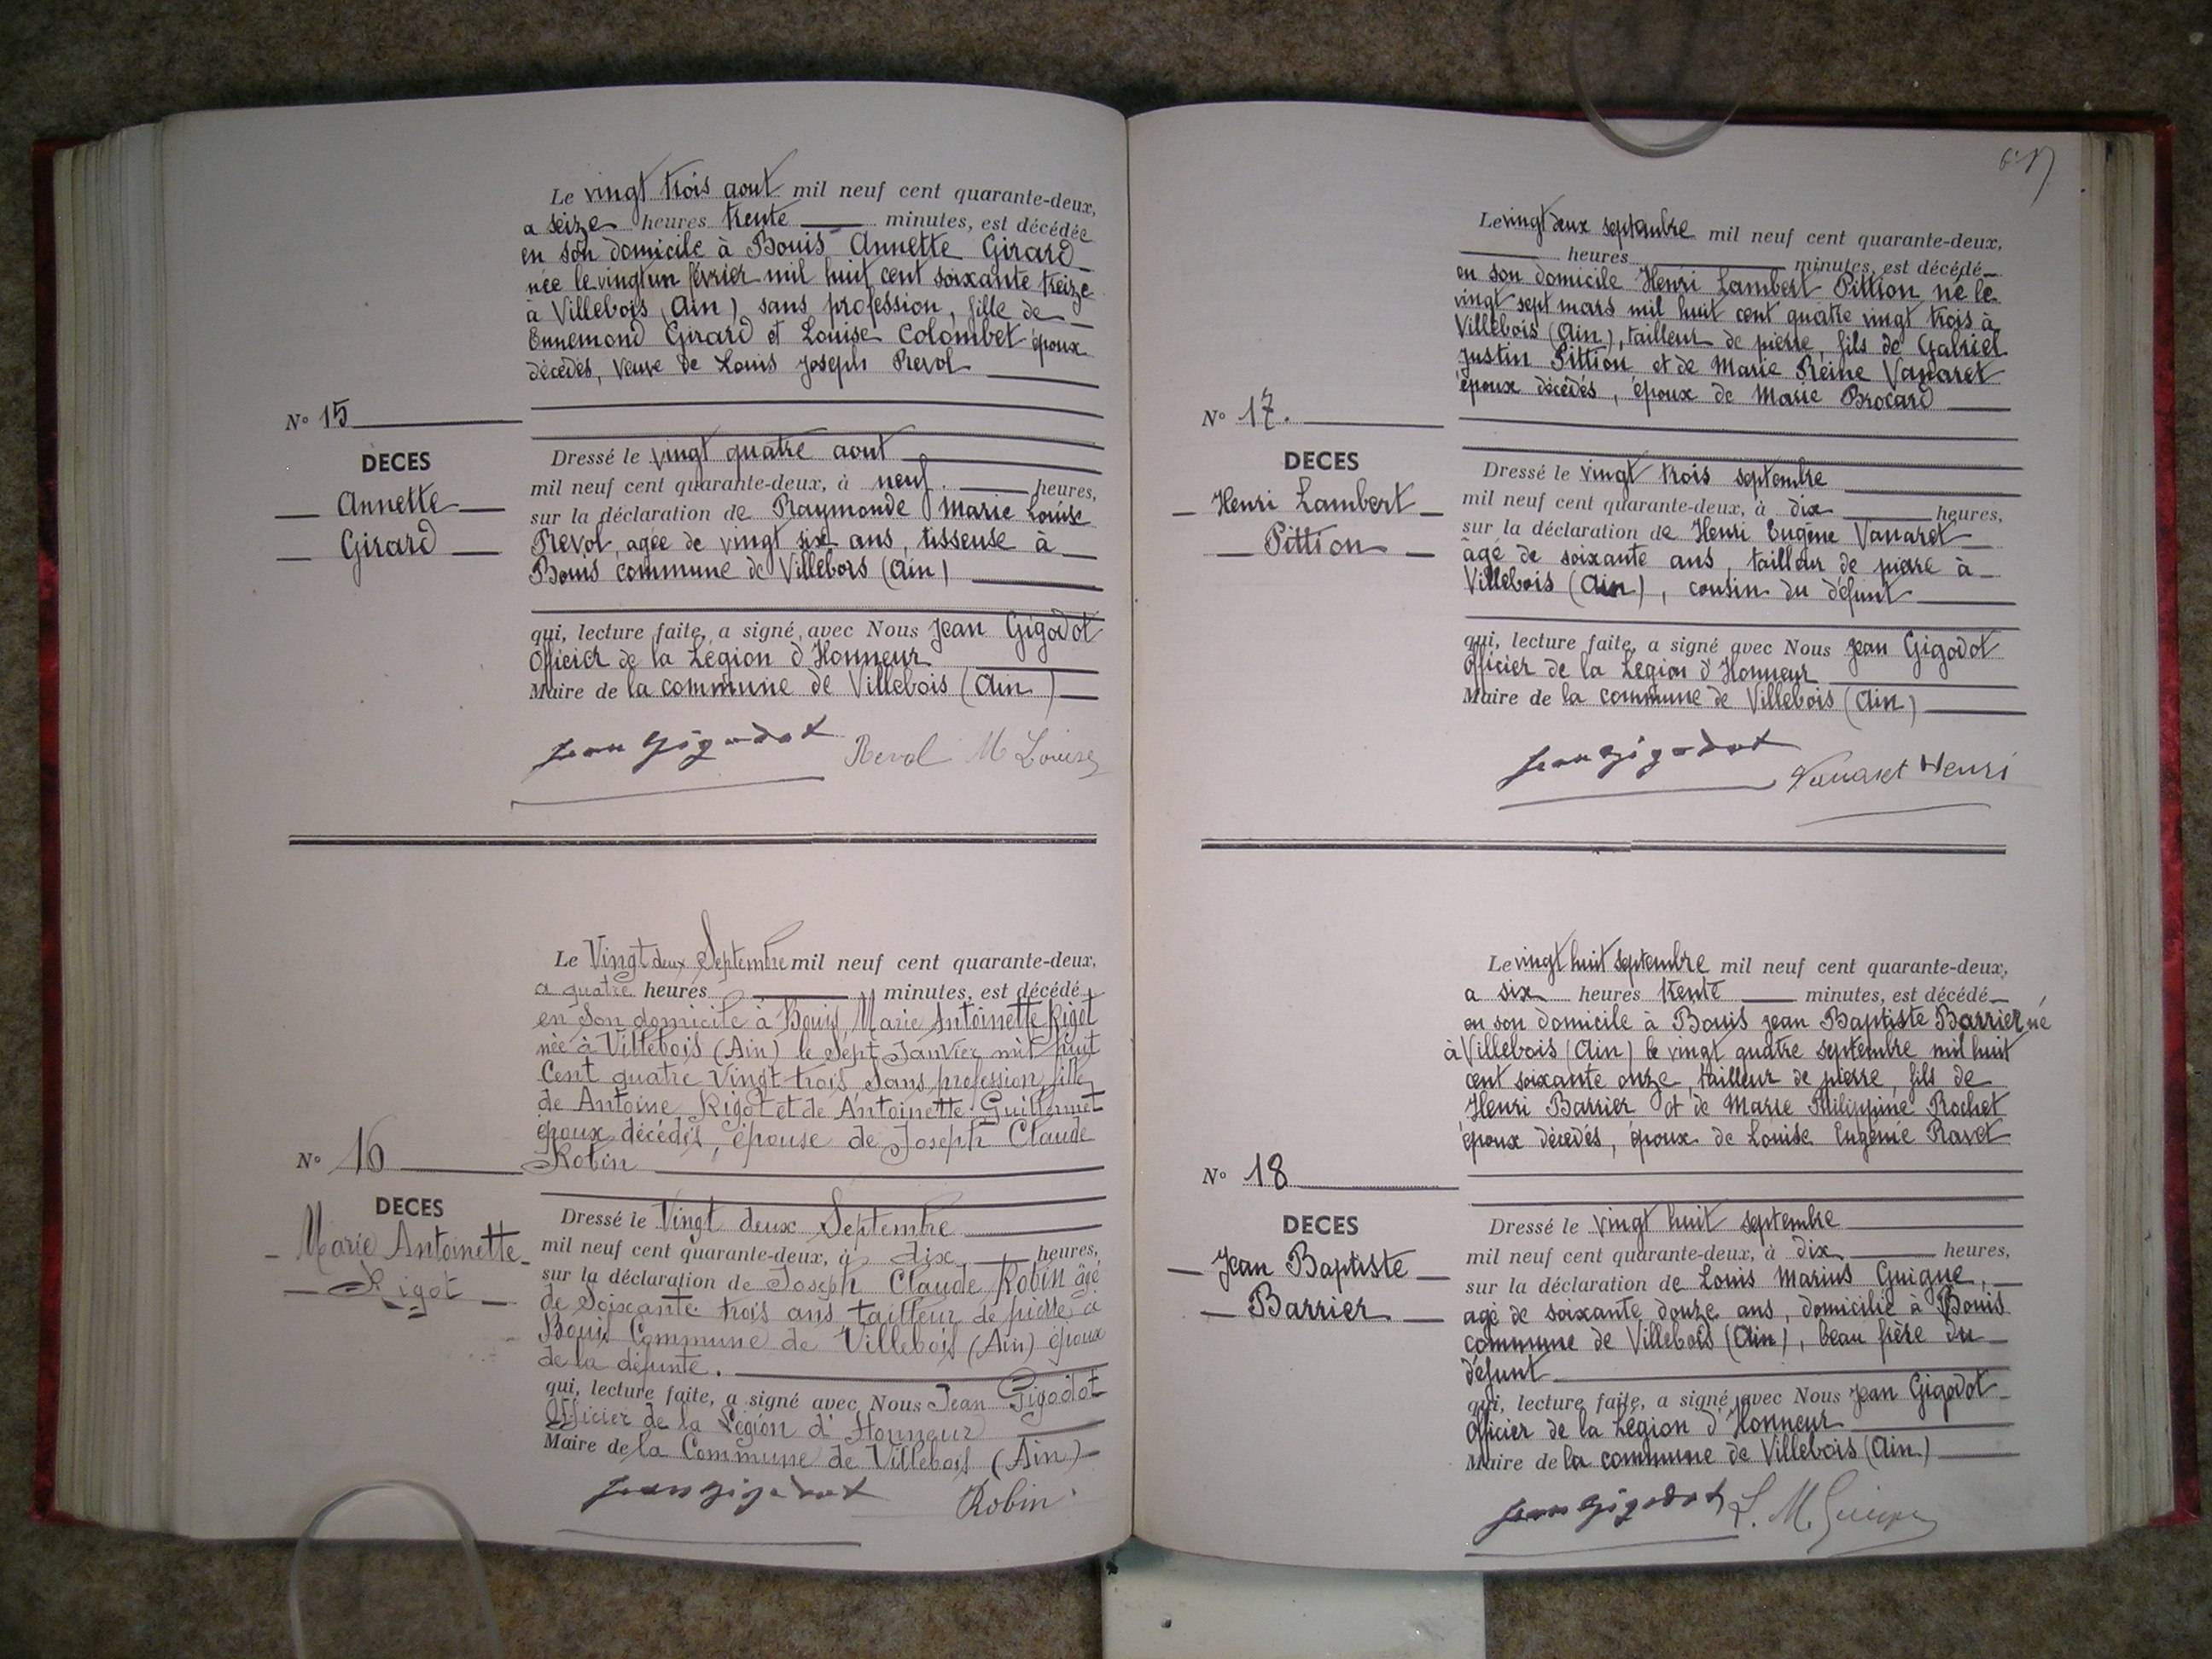 Le vingt trois aout mil neuf cent quarante-deux,
a seize heures trente minutes, est décédée
en son domicile à Bouis Annette Girard
née le vingt un février mil huit cent soixante treize
à Villebois (Ain), sans profession, fille de
Ennemond Girard et Louise Colombet époux
décédés, veuve de Louis Joseph Revol
N° 15
DECES
Annette
Girard
Dressé le vingt quatre aout
mil neuf cent quarante-deux, à neuf. heures,
sur la déclaration de Raymonde Marie Louise
Revol, agée de vingt six ans, tisseuse à
Bouis commune de Villebois (Ain)
qui, lecture faite, a signé avec Nous Jean Gigodot
Officier de la Légion d'Honneur
Maire de la commune de Villebois (Ain)
Jean Gigodot Revol M Louise
Le Vingt deux Septembre mil neuf cent quarante-deux,
a quatre heures minutes, est décédé
en Son domicile à Bouis, Marie Antoinette Rigot
née à Villebois (Ain) le Sept Janvier mil huit
Cent quatre Vingt trois Sans profession, fille
de Antoine Rigot et de Antoinette Guillermet
époux décédés, épouse de Joseph Claude
Robin
N° 16
DECES
Marie Antoinette
Rigot
Dressé le Vingt deux Septembre
mil neuf cent quarante-deux, à dix heures,
sur la déclaration de Joseph Claude Robin âgé
de Soixante trois ans tailleur de pierre à
Bouis Commune de Villebois (Ain) époux
de la défunte.
qui, lecture faite, a signé avec Nous Jean Gigodot
Officier de la Légion d'Honneur
Maire de la Commune de Villebois (Ain)
Jean Gigodot Robin
Le vingt deux septembre mil neuf cent quarante-deux,
heures minutes, est décédé
en son domicile Henri Lambert Pittion né le
vingt sept mars mil huit cent quatre vingt trois à
Villebois (Ain), tailleur de pierre, fils de Gabriel
Justin Pittion et de Marie Reine Vanaret
époux décédés, époux de Marie Brocard
N° 17.
DECES
Henri Lambert
Pittion
Dressé le vingt trois septembre
mil neuf cent quarante-deux, à dix heures,
sur la déclaration de Henri Eugène Vanaret
âgé de soixante ans, tailleur de pierre à
Villebois (Ain), cousin du défunt
qui, lecture faite, a signé avec Nous Jean Gigodot
Officier de la Légion d'Honneur
Maire de la commune de Villebois (Ain)
Jean Gigodot Vanaret Henri
Le vingt huit septembre mil neuf cent quarante-deux,
a six heures trente minutes, est décédé
en son domicile à Bouis Jean Baptiste Barrier né
à Villebois (Ain) le vingt quatre septembre mil huit
cent soixante onze, tailleur de pierre, fils de
Henri Barrier et de Marie Philippine Rochet
époux décédés, époux de Louise Eugénie Ravet
N° 18
DECES
Jean Baptiste
Barrier
Dressé le vingt huit septembre
mil neuf cent quarante-deux, à dix heures,
sur la déclaration de Louis Marius Guigue,
agé de soixante douze ans, domicilié à Bouis
commune de Villebois (Ain), beau frère du
défunt
qui, lecture faite, a signé avec Nous Jean Gigodot
Officier de la Légion d'Honneur
Maire de la commune de Villebois (Ain)
Jean Gigodot L. M. Guigue